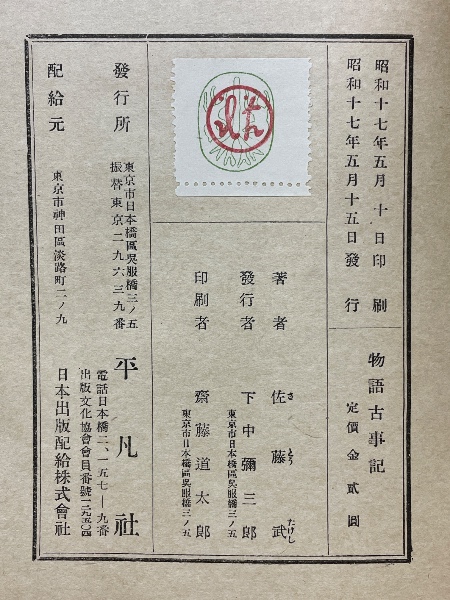 昭和十七年五月 十 日印 刷
昭和十七年五月十五日發 行
物語古事記
定價金貳圓
著者 佐藤武
さとうたけし
發行者 下中彌三郎
東京市日本橋區吳服橋三ノ五
印刷者 齋藤道太郎
東京市日本橋區吳服橋三ノ五
發行所
東京市日本橋區吳服橋三ノ五
振替東京二九六三九番
平凡社
電話日本橋二、一五七—九番
出版文化協會會員番號一二九五〇四
配給元
東京市神田區淡路町二ノ九
日本出版配給株式會社